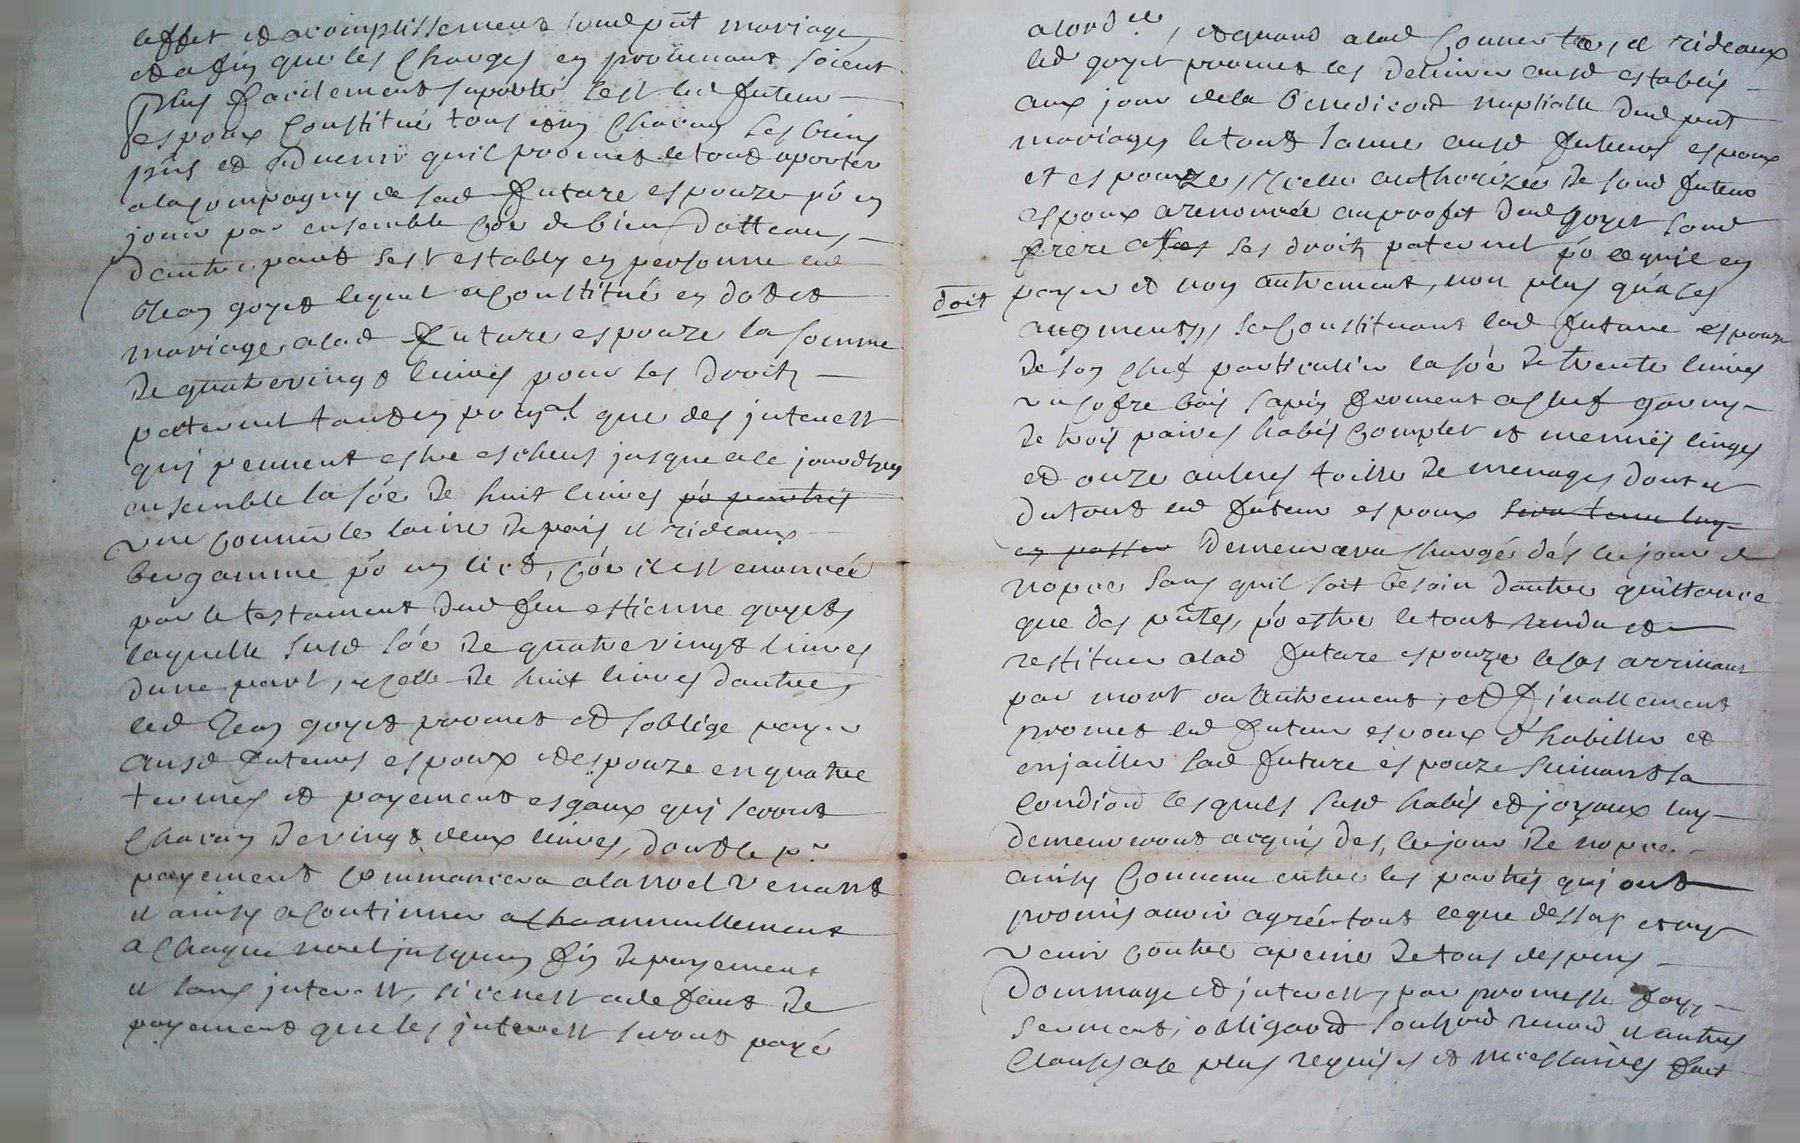 leffet et acomplissement dud pnt mariage
et afin que les charges en provenant soient
plus facilement suporté sest led futeur
espoux constitué tous et un chacun ses biens
pnts et advenir quil promet le tout aporter
a la compagny de lad future espouze po en
jouir par ensemble coe de bien dottaux
dautre part sest estably en personne led
Jean goyet lequel a constitué en dot et
mariage a lad future espouze la somme
de quatrevingt livres pour ses droitz
paternel tant en po pal que des interest
quj peuvent estre escheus jusque a ce jourdhuy
ensemble la soe de huit livres po parties
une couverte laine de pais et rideaux
bergamme po un lict, coe il est enoncéé
par le testament dud feu estienne goyet,
laquelle susd soe de quatrevingt livres
dune part, et celle de huit livres dautre,
led Jean goyet promet et soblige payer
ausd futeurs espoux et espouze en quatre
termes et payement esgaux quj seront
chacun de vingt deux livres, dont le pr
payement commancera a la noel venant
et ainsy a continuer annuellement
a chaque noel jusquen fin de payement
et sans interest, si ce nest a defaut de
payement que les interest seront payé
a lord re, et quand a lad couverte, et rideaux
led goyet promet les delivrer ausd establis
aux jour de la benediction nuptialle dud pnt
mariage, le tout ausd futeurs espoux
et espouze, icelle authorizéé de sond futeur
espoux a renoncée au profit dud goyet sond
frere a ses droitz paternel po ce quil en
doit payer et non autrement, non plus qua ses
augments, se constituant lad future espouze
de son chef particulier la soe de trente livres
un cofre bois sapin fermant a clef garny
de trois paires habis complet et menuës linges
et onze aulnes toille de menage, dont et
du tout led futeur espoux sera tenu luy
en passer demeurera chargé dés le jour de
nopces sans quil soit besoin dautre quittance
que des pntes, po estre le tout rendu et
restituer a lad future espouze le cas arrivant
par mort ou autrement, et finallement
promet led futeur espoux dhabiller et
enjailler lad future espouze suivant sa
condion lesquels susd habis et joyaux luy
demeureront acquis des, le jour de nopces
ainsy convenu entre les parties quj ont
promis avoir agréé tout ce que dessus et ny
venir contre a peine de tous despens
dommage et interest, par promesse foy,
serment, obligaon soubmon renon et autres
clauses a ce plus requises et necessaires fait